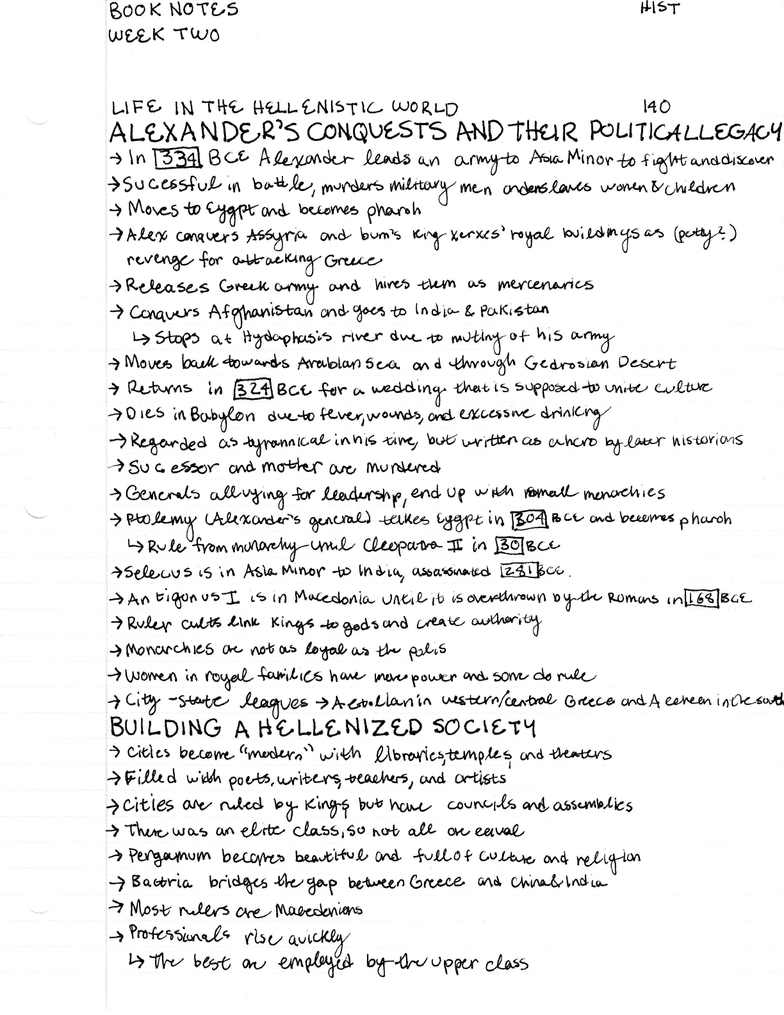 BOOK NOTES HIST
WEEK TWO
LIFE IN THE HELLENISTIC WORLD 140
ALEXANDER'S CONQUESTS AND THEIR POLITICAL LEGACY
→ In 334 BCE Alexander leads an army to Asia Minor to fight and discover
→ Sucessful in battle, murders military men and enslaves women & children
→ Moves to Eygpt and becomes pharoh
→ Alex conquers Assyria and burns king xerxes' royal buildings as (petty?)
revenge for attacking Greece
→ Releases Greek army and hires them as mercenaries
→ Conquers Afghanistan and goes to India & Pakistan
↳ Stops at Hydaphasis river due to mutiny of his army
→ Moves back towards Arabian Sea and through Gedrosian Desert
→ Returns in 324 BCE for a wedding that is supposed to unite culture
→ Dies in Babylon due to fever, wounds, and excessive drinking
→ Regarded as tyrannical in his time, but written as a hero by later historians
→ Sucessor and mother are murdered
→ Generals all vying for leadership, end up with small monarchies
→ Ptolemy (Alexander's general) takes Eygpt in 304 BCE and becomes pharoh
↳ Rule from monarchy until Cleopatra II in 30 BCE
→ Selecus is in Asia Minor to India, assassinated 281 BCE.
→ Antigonus I is in Macedonia until it is overthrown by the Romans in 168 BCE
→ Ruler cults link Kings to gods and create authority
→ Monarchies are not as loyal as the polis
→ Women in royal families have more power and some do rule
→ City-state leagues → Aetolian in western/central Greece and Acheen in the south
BUILDING A HELLENIZED SOCIETY
→ Cities become "modern" with libraries, temples, and theaters
→ Filled with poets, writers, teachers, and artists
→ Cities are ruled by Kings but have councils and assemblies
→ There was an elite class, so not all are equal
→ Pergamum becomes beautiful and full of culture and religion
→ Bactria bridges the gap between Greece and China & India
→ Most rulers are Macedonians
→ Professionals rise quickly
↳ The best are employed by the upper class